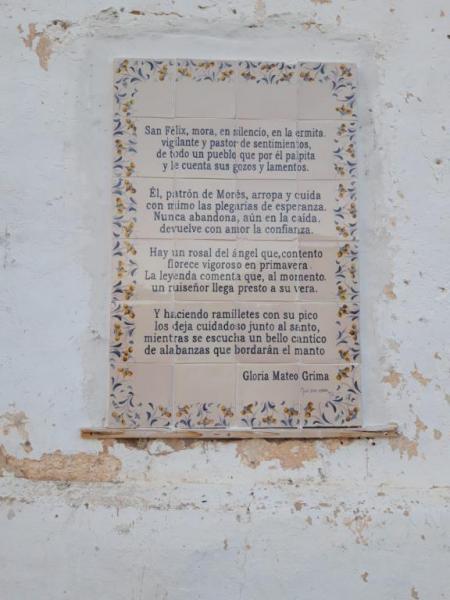 San Félix, mora, en silencio, en la ermita.
vigilante y pastor de sentimientos,
de todo un pueblo que por él palpita
y le cuenta sus gozos y lamentos.
Él, patrón de Morés, arropa y cuida
con mimo las plegarias de esperanza.
Nunca abandona, aún en la caída.
devuelve con amor la confianza.
Hay un rosal del ángel que,contento
florece vigoroso en primavera.
La leyenda comenta que, al momento.
un ruiseñor llega presto a su vera.
Y haciendo ramilletes con su pico
los deja cuidadoso junto al santo,
mientras se escucha un bello cantico
de alabanzas que bordarán el manto
Gloria Mateo Grima